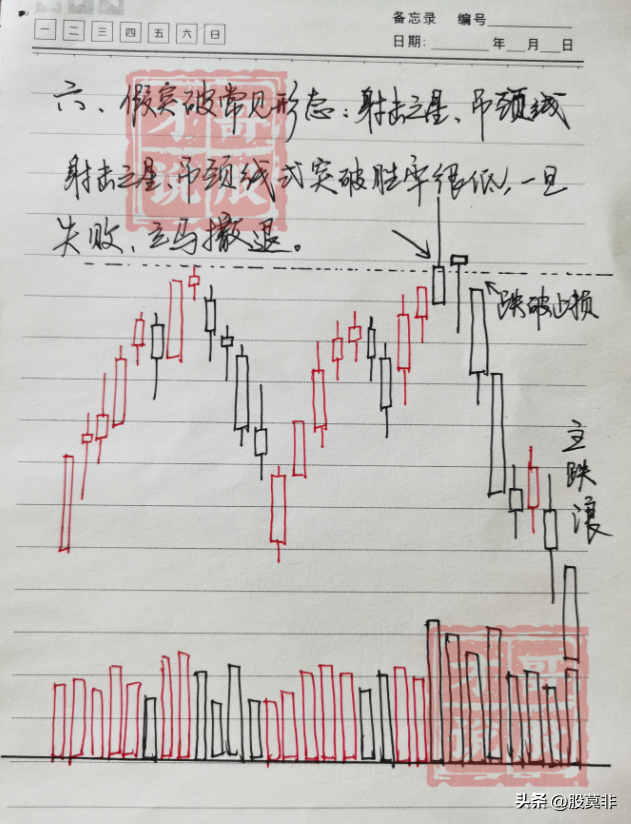 备忘录 编号
一 二 三 四 五 六 日
日期: 年 月 日
六、假突破常见形态：射击之星、吊颈线
射击之星、吊颈线式突破胜率很低，一旦
失败，立马撤退。
跌破止损
主跌浪
头条 @股莫非